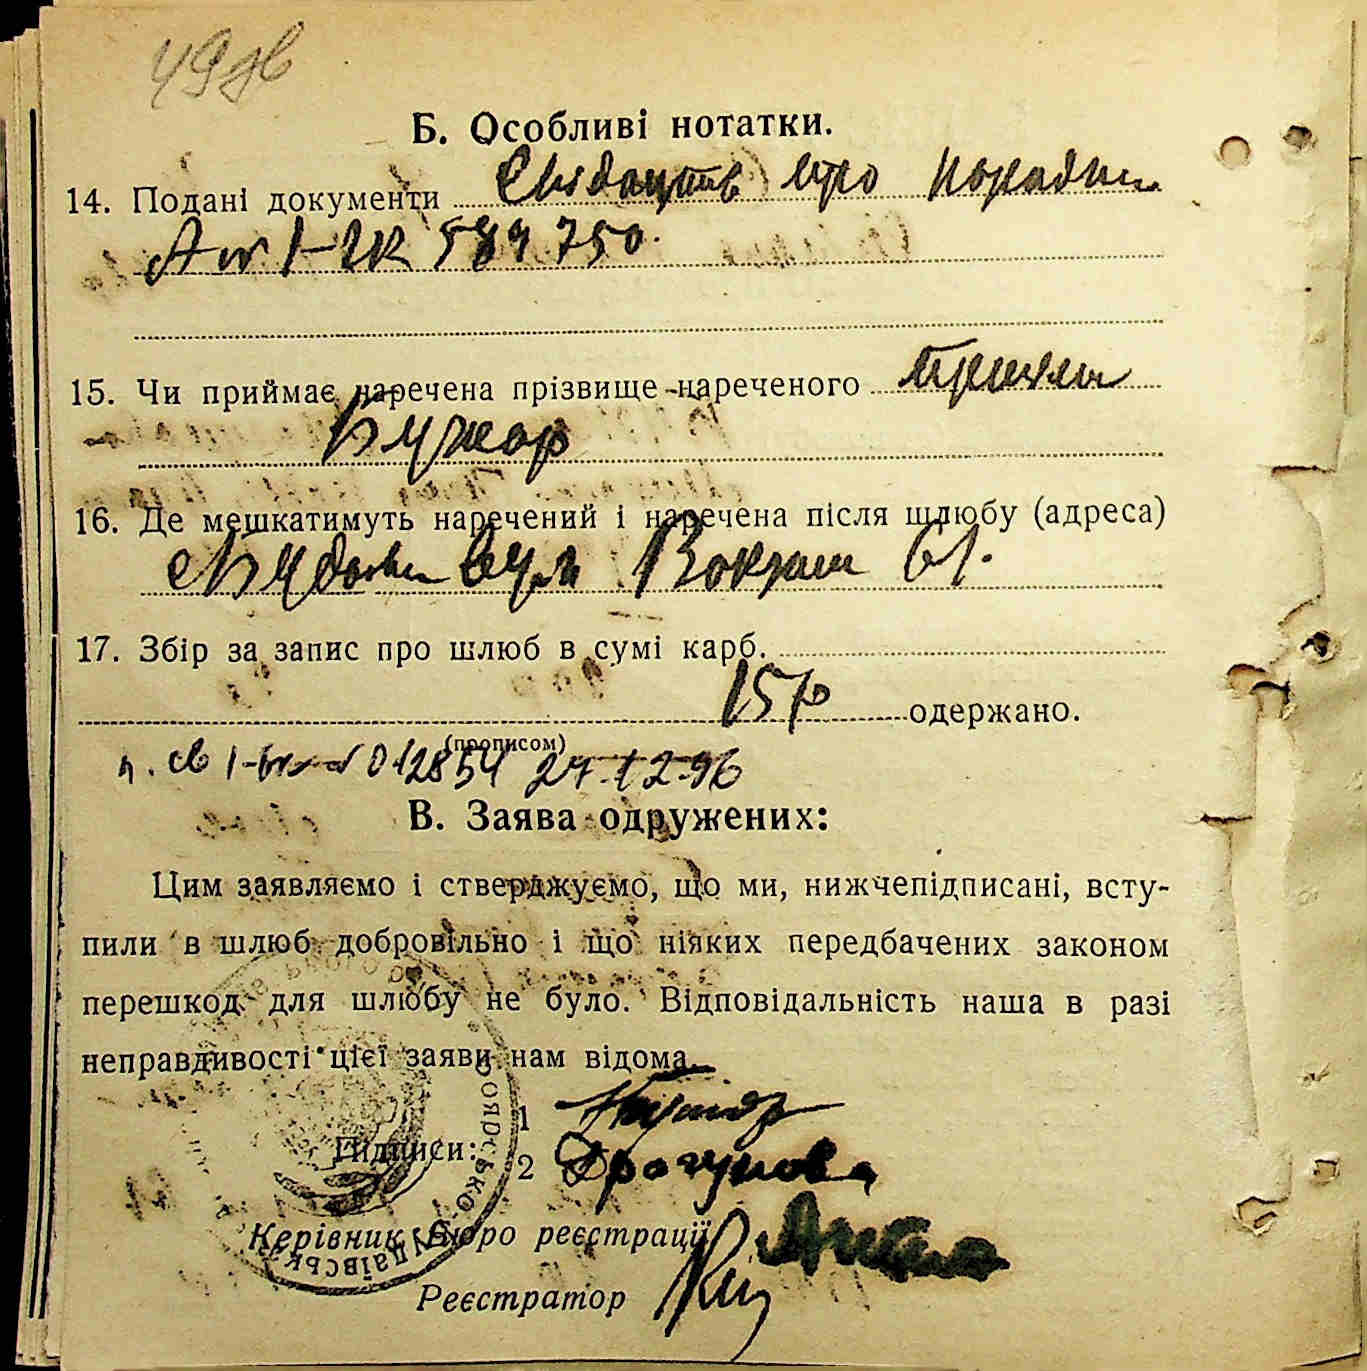 49зв
Б. Особливі нотатки.
14. Подані документи Свідоцтв про народжен
І-БК 589750.
15. Чи приймає наречена прізвище нареченого приймає
Бужор
16. Де мешкатимуть наречений і наречена після шлюбу (адреса)
вул Вокзал 61.
17. Збір за запис про шлюб в сумі карб.
15р одержано.
(прописом)
п. св 012854 27.12.96
В. Заява одружених:
Цим заявляємо і стверджуємо, що ми, нижчепідписані, всту-
пили в шлюб добровільно і що ніяких передбачених законом
перешкод для шлюбу не було. Відповідальність наша в разі
неправдивості цієї заяви нам відома.
1
Підписи: 2 Драгунова
Керівник Бюро реєстрації
Реєстратор